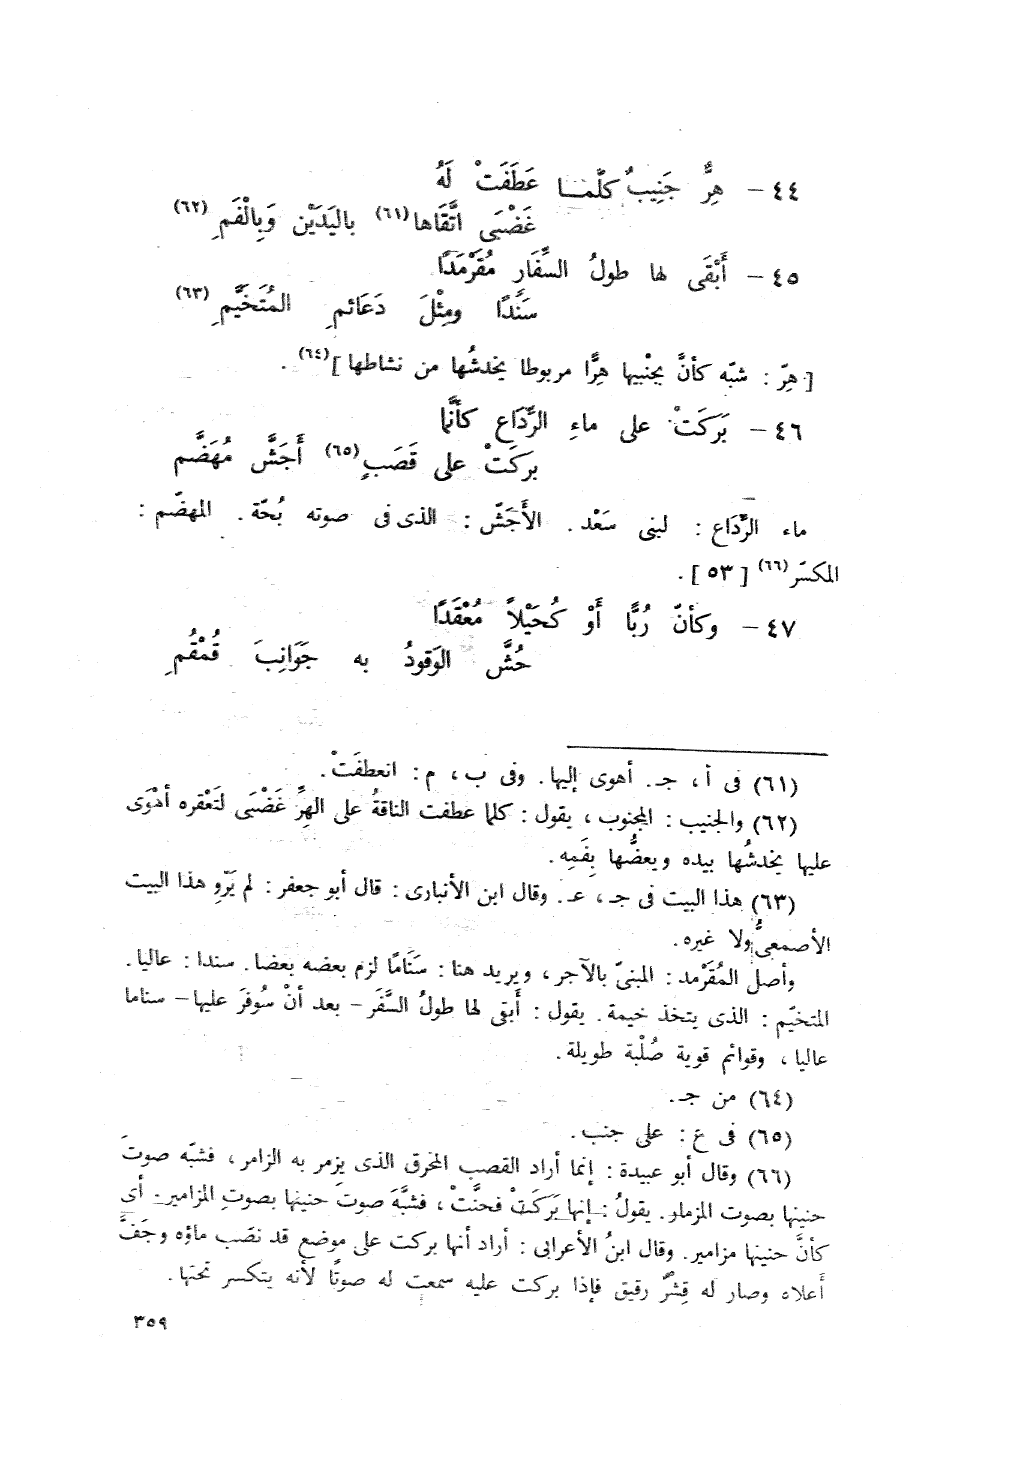 ٤٤ – هِرٌّ جَنِيبٌ كلَّمــا عَطَفَتْ لَهُ
غَضْبَى اتَّقَاها(٦١) باليَدَيْن وَبِالْفَمِ(٦٢)
٤٥ – أَبْقَى لها طولُ السِّفَارِ مُقَرْمَدًا
سَنَدًا ومِثْلَ دَعَائم المُتَخَيَّمِ(٦٣)
[ هِرّ : شبّه كأنَّ بجنْبيها هِرًّا مربوطا يخدشُها من نشاطها ](٦٤).
٤٦ – بَرَكَتْ على ماءِ الرِّدَاعِ كأنَّما
بركَتْ على قَصَبٍ(٦٥) أَجَشَّ مُهَضَّم
ماء الرِّدَاع : لبنى سَعْد . الأَجَشّ : الذى فى صوته بُحّة . المهضّم :
المكسّر(٦٦) [ ٥٣ ] .
٤٧ – وكأنّ رُبًّا أَوْ كُحَيْلاً مُعْقَدًا
حُشَّ الوَقودُ به جَوَانِبَ قُمْقُمِ
(٦١) فى أ ، جـ . أهوى إليها . وفى ب ، م : انعطفَتْ .
(٦٢) والجنيب : المجنوب ، يقول : كلما عطفت الناقةُ على الهِرِّ غَضْبَى لتَعْقره أهْوَى
عليها يخدشُها بيده ويعضُّها بِفَمِه .
(٦٣) هذا البيت فى جـ ، عـ . وقال ابن الأنبارى : قال أبو جعفر : لم يَرْوِ هذا البيت
الأصمعىُّ ولا غيره .
وأصل المُقَرْمد : المبنىّ بالآجر ، ويريد هنا : سَنَامًا لزم بعضه بعضا . سندا : عاليا .
المتخيّم : الذى يتخذ خيمة . يقول : أَبقى لها طولُ السَّفَر – بعد أنْ سُوفرَ عليها – سناما
عاليا ، وقوائم قوية صُلْبة طويلة .
(٦٤) من جـ .
(٦٥) فى ع : على جنب .
(٦٦) وقال أبو عبيدة : إنما أراد القصب المخرق الذى يزمر به الزامر ، فشبّه صوتَ
حنينها بصوت المزمار . يقولُ : إنها بَرَكَتْ فحنَّتْ ، فشبَّهَ صوتَ حنينها بصوتِ المزامير – أى
كأنَّ حنينها مزامير . وقال ابنُ الأعرابى : أراد أنها بركت على موضع قد نضَب ماؤه وجَفَّ
أعلاه وصار له قِشرٌ رقيق فإذا بركت عليه سمعت له صوتًا لأنه يتكسر تحتها .
٣٥٩